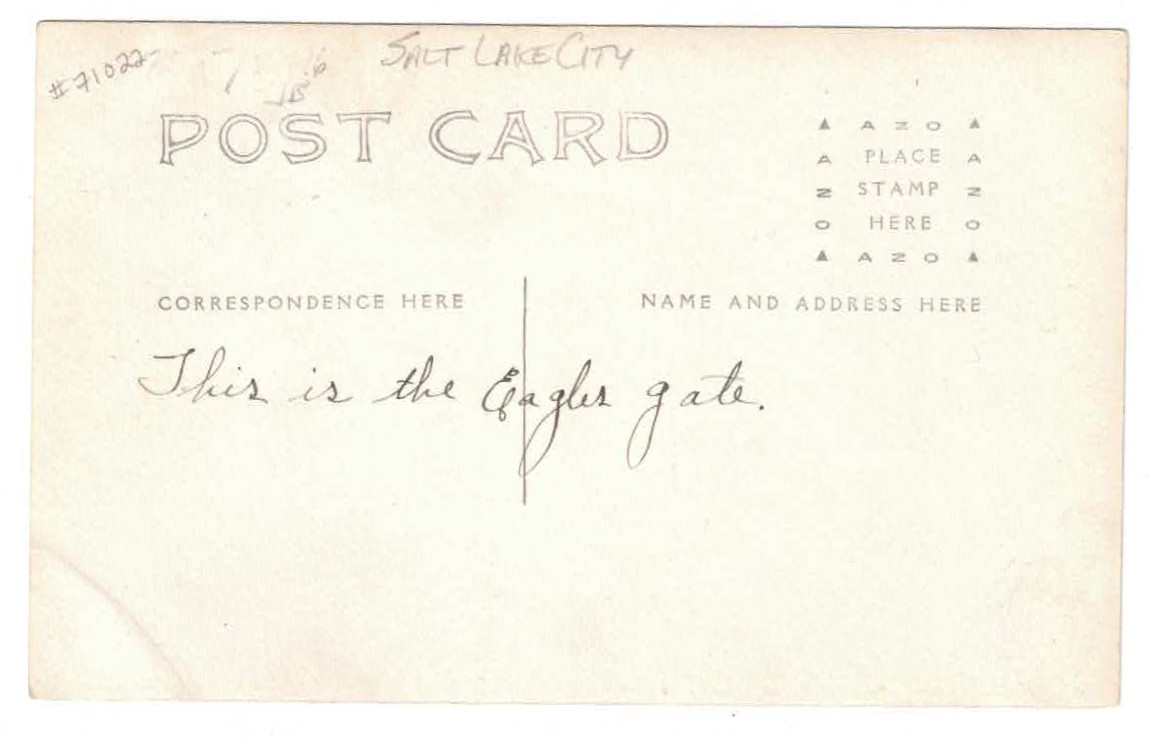 #71022
SALT LAKE CITY
POST CARD
AZO
A PLACE A
Z STAMP Z
O HERE O
AZO
CORRESPONDENCE HERE
NAME AND ADDRESS HERE
This is the Eagles gate.